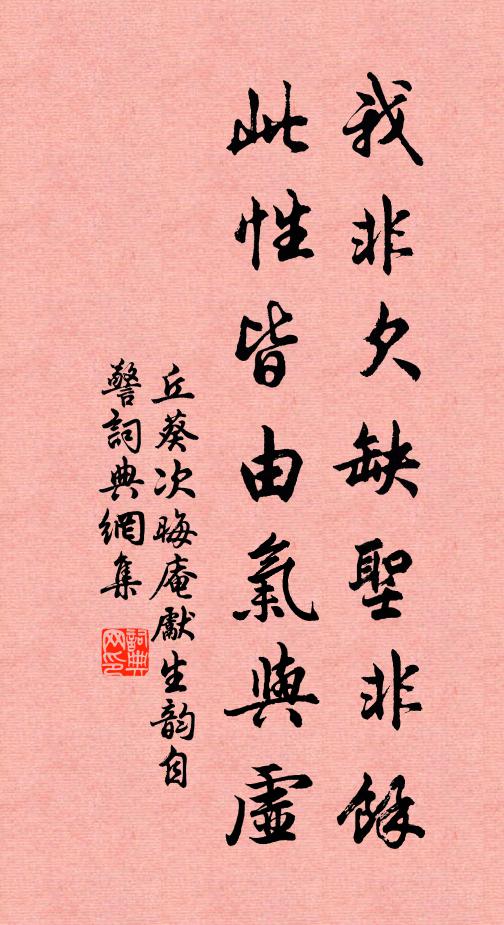 我非欠缺聖非餘
此性皆由氣與虛
丘葵次晦庵獻生韵自
警詞典網集
詞典网印